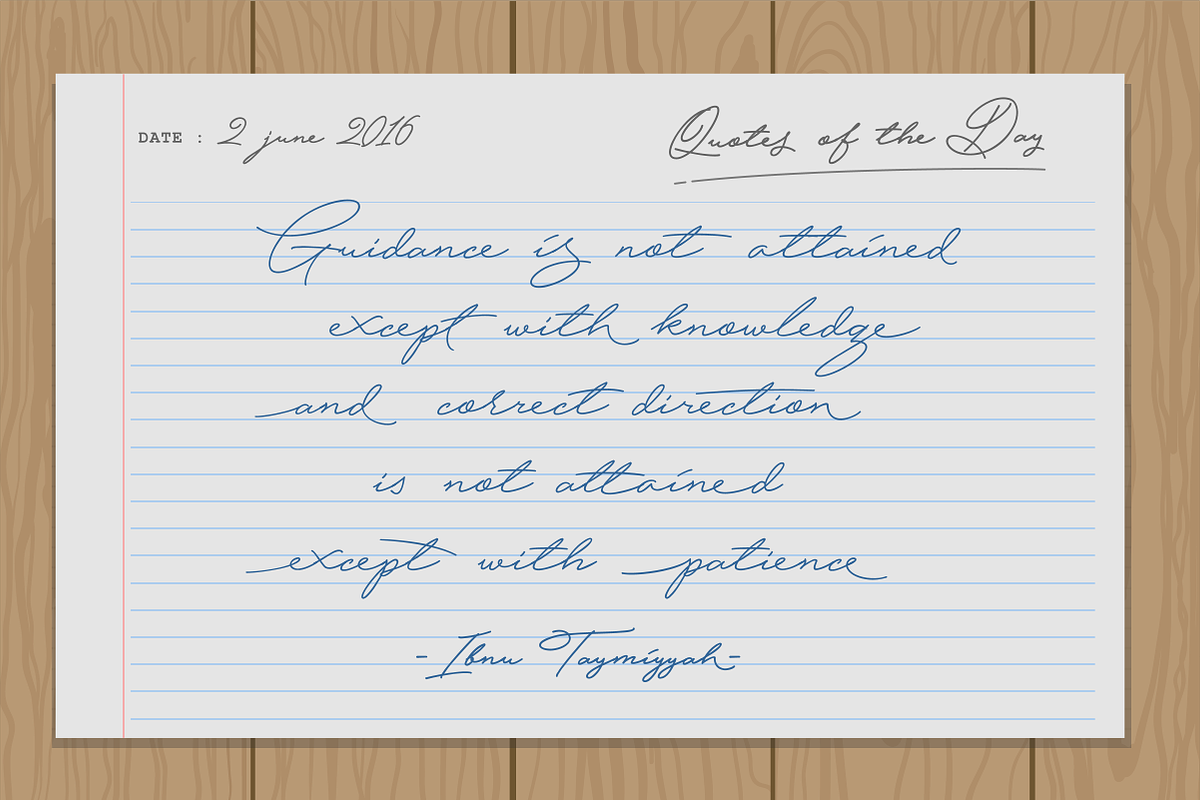 DATE : 2 june 2016
Quotes of the Day
Guidance is not attained
except with knowledge
and correct direction
is not attained
except with patience
-Ibnu Taymiyyah-